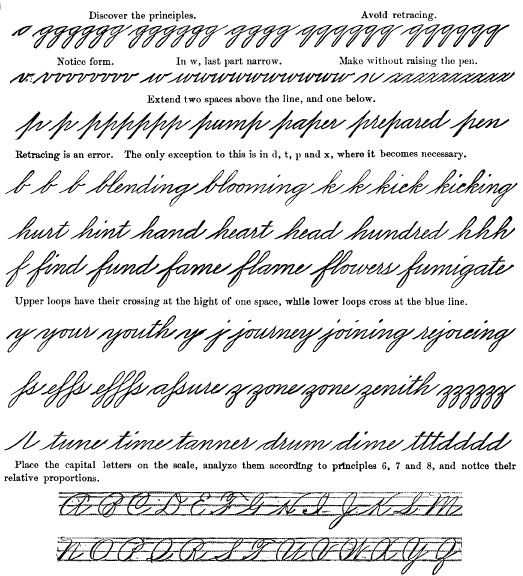 Discover the principles. Avoid retracing.
Notice form. In w, last part narrow. Make without raising the pen.
v. vvvvvvvv w wwwwwwwwwwww x xxxxxxxxxxx
Extend two spaces above the line, and one below.
p p pppppp pump paper prepared pen
Retracing is an error. The only exception to this is in d, t, p and x, where it becomes necessary.
b b b blending blooming k k kick kicking
hurt hint hand heart head hundred hhh
f find fund fame flame flowers fumigate
Upper loops have their crossing at the hight of one space, while lower loops cross at the blue line.
y your youth y j journey joining rejoicing
assure z zone zone zenith zzzzzz
tune time tanner drum dime tttdddd
Place the capital letters on the scale, analyze them according to principles 6, 7 and 8, and notice their
relative proportions.
A B C D E F G H I J K L M
N O P Q R S T U V W X Y Z